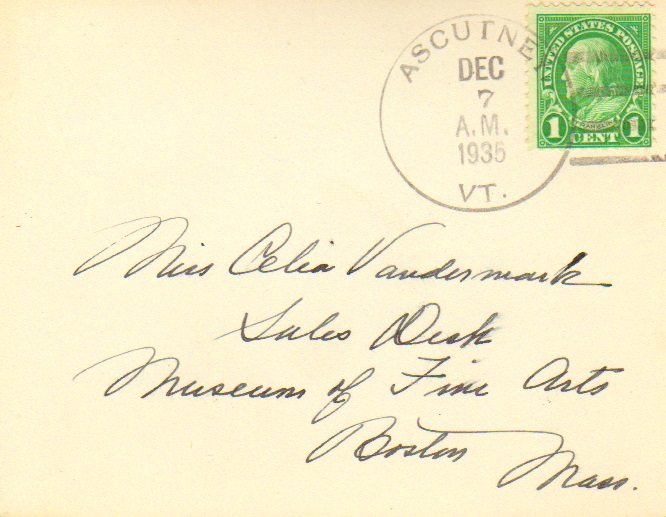 ASCUTNEY
DEC
7
A.M.
1935
VT.
UNITED STATES POSTAGE
FRANKLIN
1 CENT 1
Miss Celia Vandermark
Sales Desk
Museum of Fine Arts
Boston
Mass.